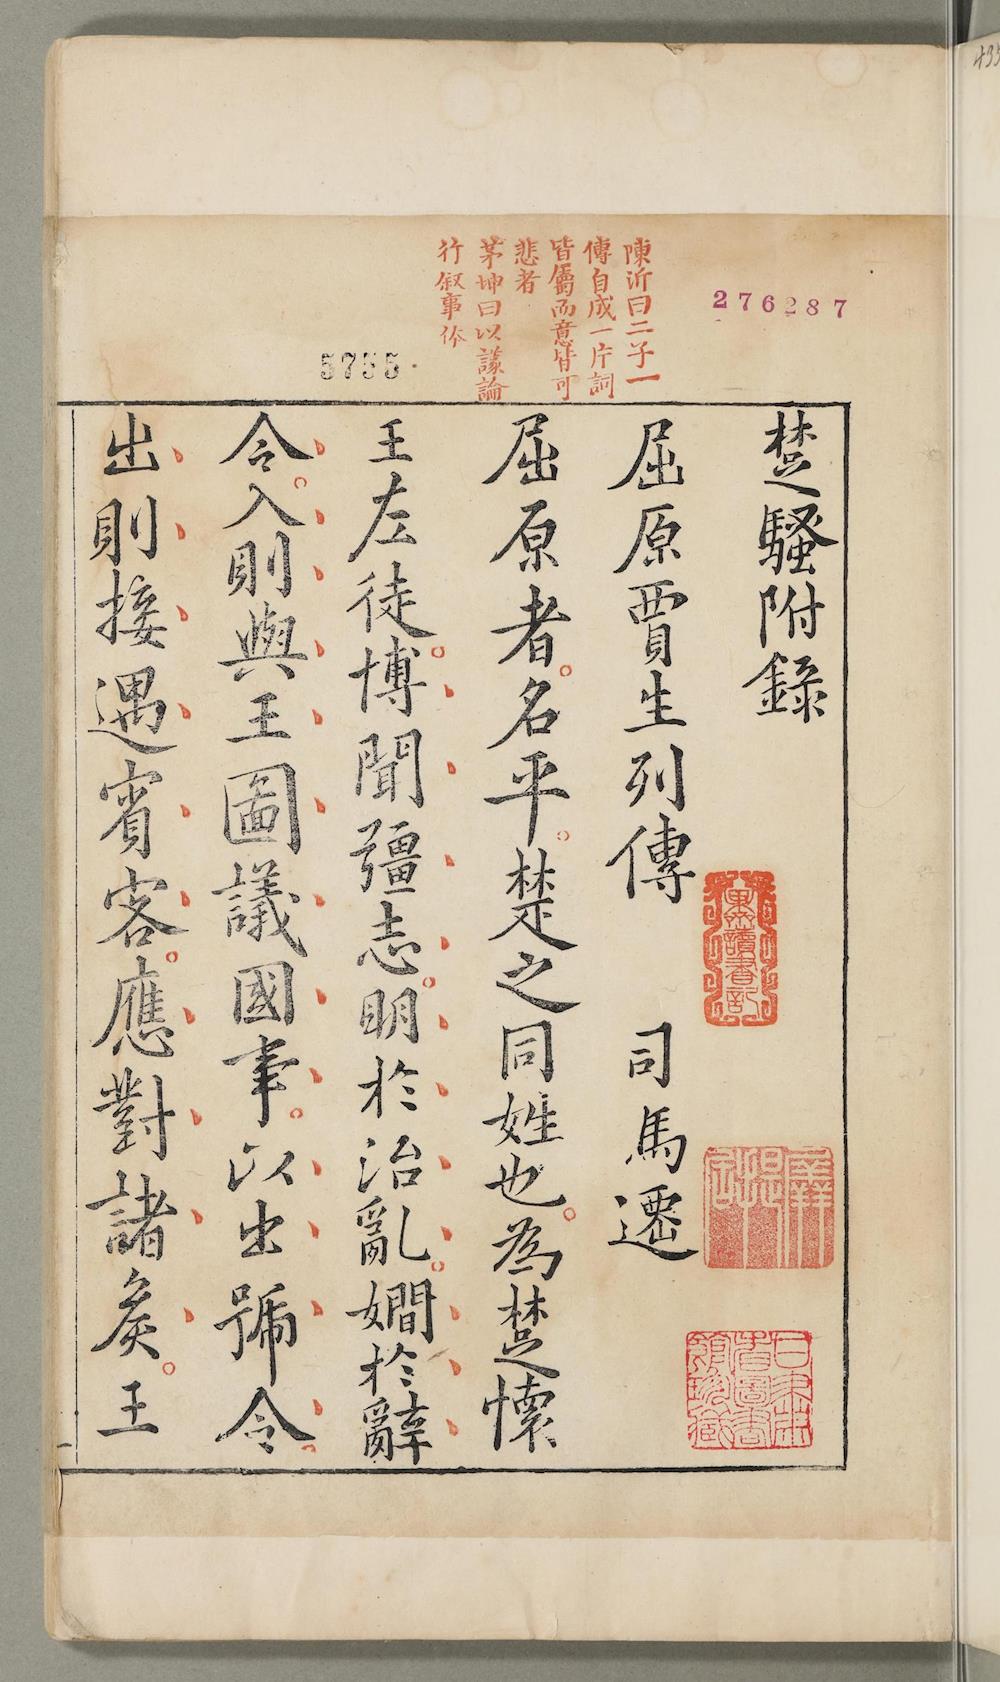 435
276287
5755
陳沂曰二子一
傳自成一片詞
皆屬而意皆可
悲者
茅坤曰以議論
行叙事体
楚騷附錄
屈原賈生列傳　司馬遷
屈原者名平楚之同姓也為楚懷
王左徒博聞彊志明於治亂嫺於辭
令入則與王圖議國事以出號令
出則接遇賓客應對諸矦王
讀書記